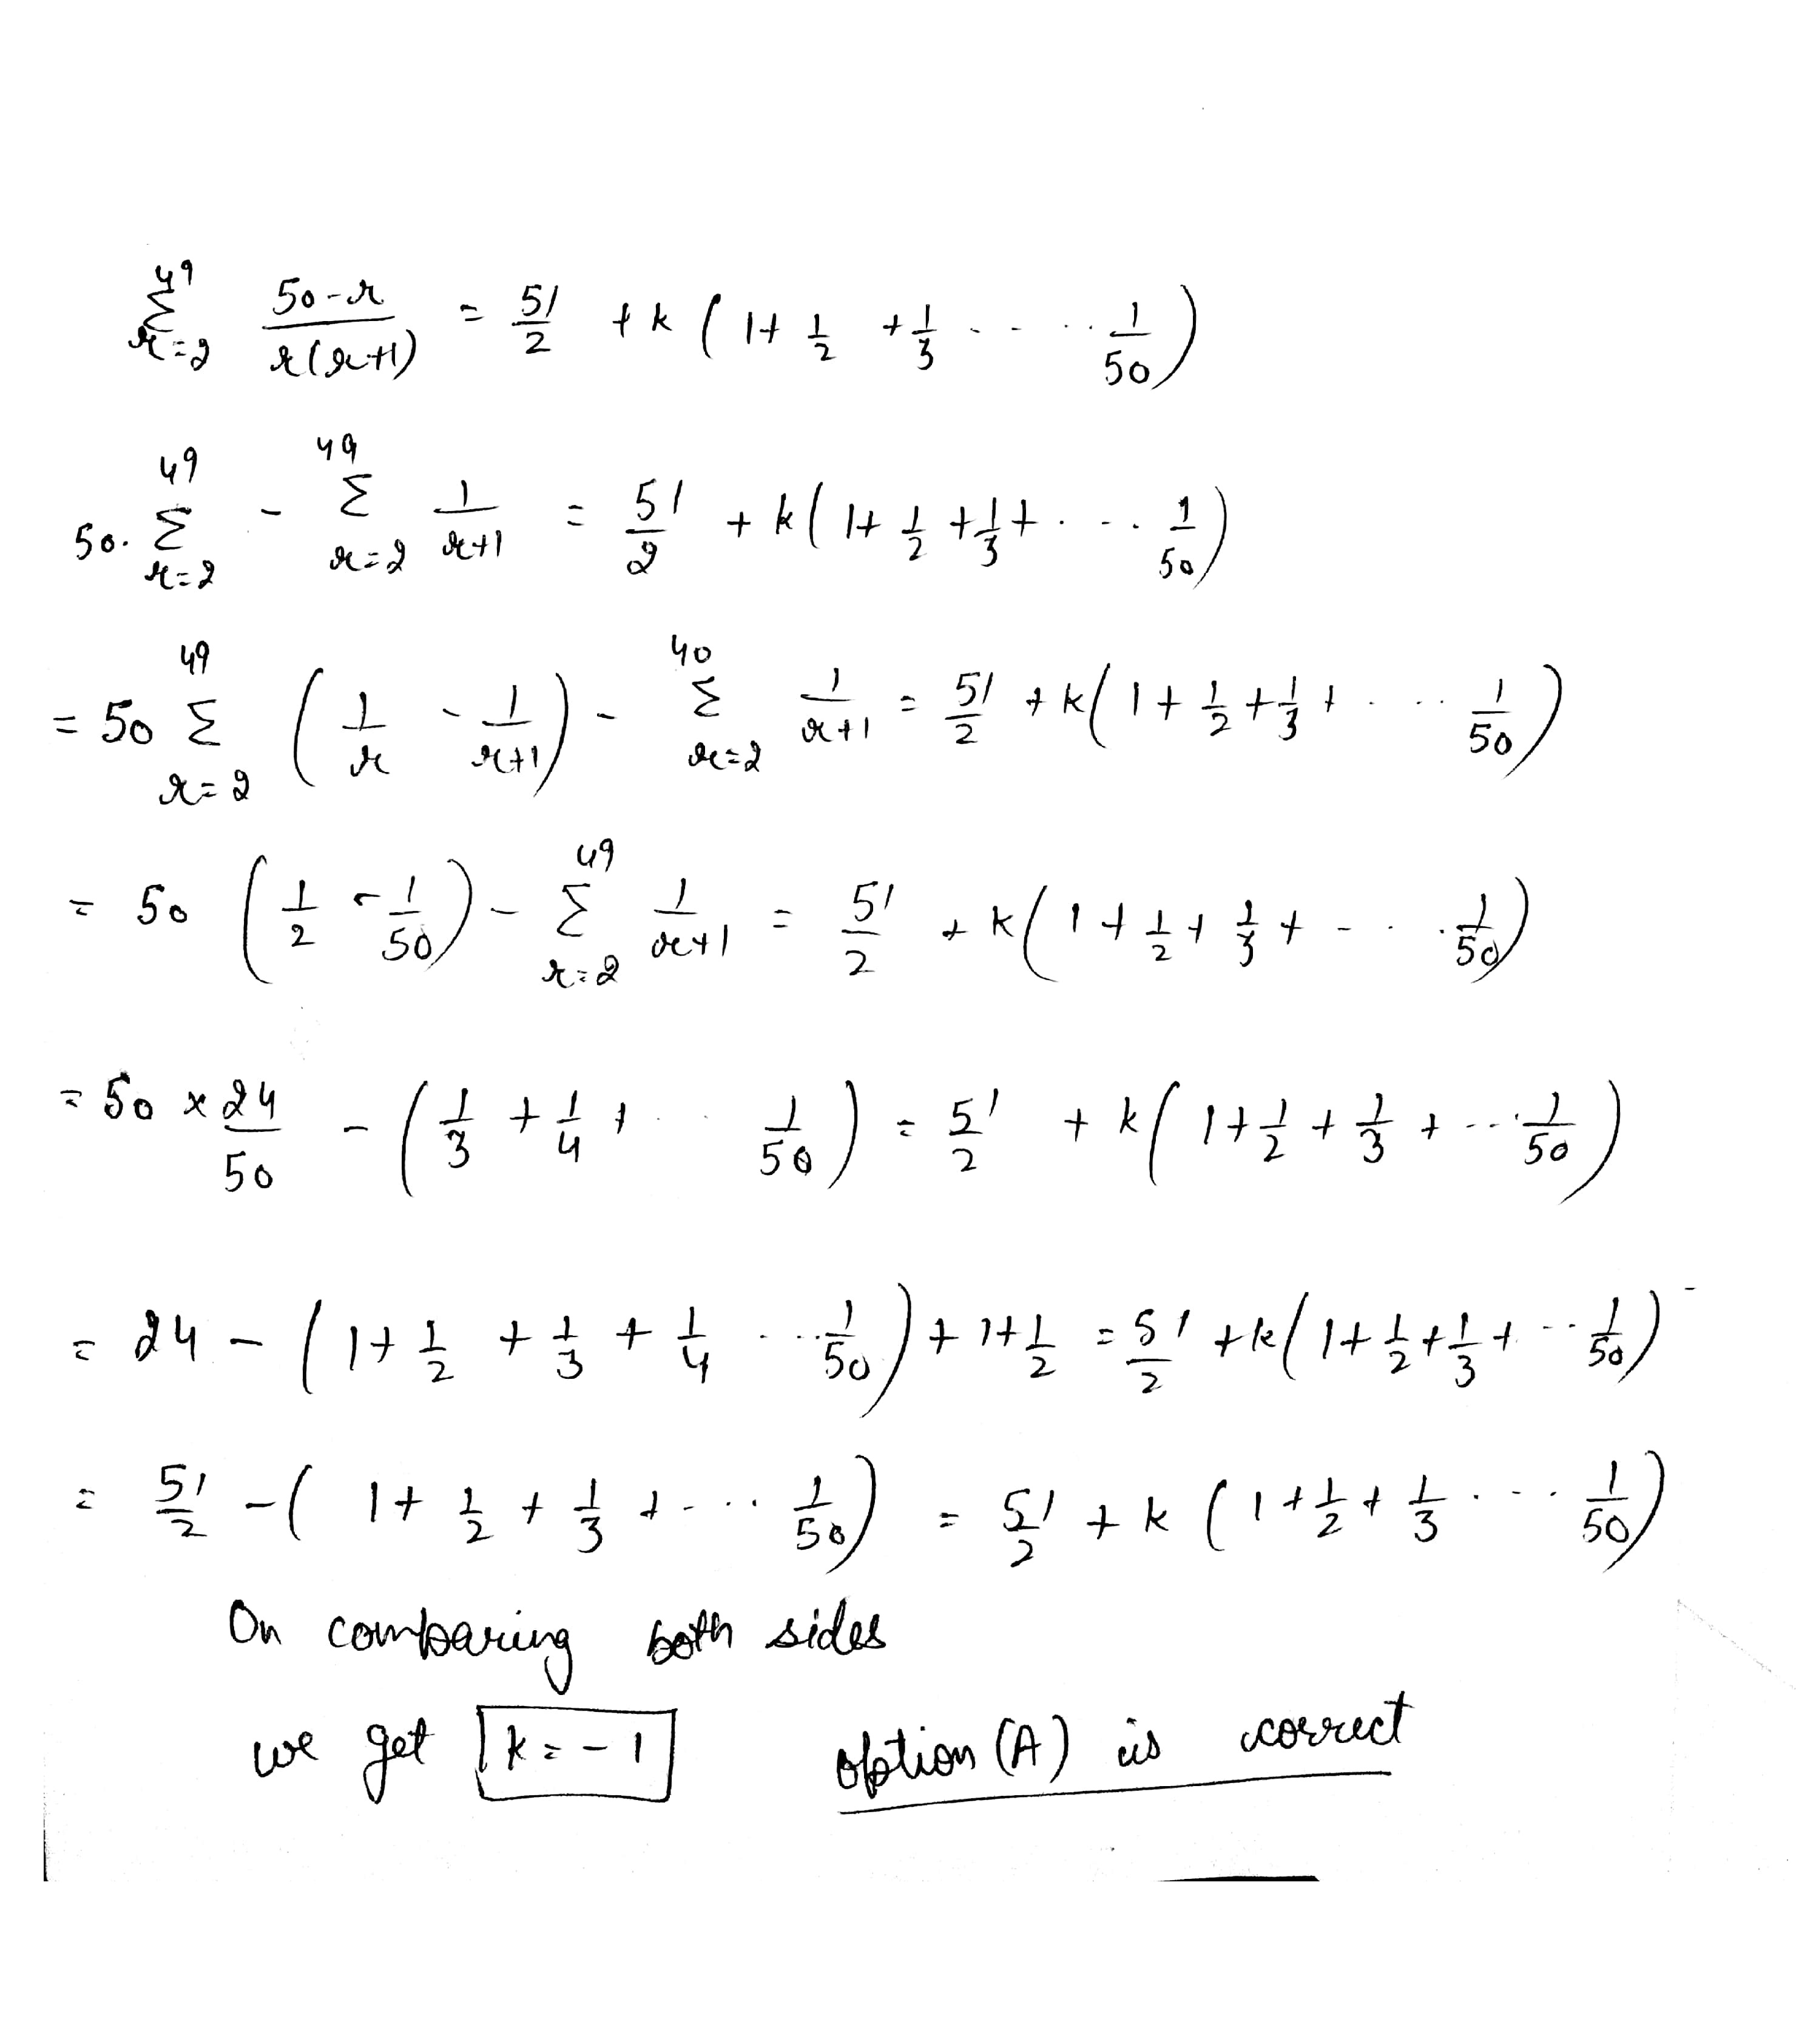 \sum_{r=2}^{49} \frac{50-r}{r(r+1)} = \frac{51}{2} + k ( 1+ \frac{1}{2} + \frac{1}{3} - - \cdots \frac{1}{50} )
50. \sum_{r=2}^{49} - \sum_{r=2}^{49} \frac{1}{r+1} = \frac{51}{2} + k ( 1+ \frac{1}{2} + \frac{1}{3} + \cdots \frac{1}{50} )
= 50 \sum_{r=2}^{49} ( \frac{1}{r} - \frac{1}{r+1} ) - \sum_{r=2}^{40} \frac{1}{r+1} = \frac{51}{2} + k ( 1 + \frac{1}{2} + \frac{1}{3} + \cdots \frac{1}{50} )
= 50 ( \frac{1}{2} - \frac{1}{50} ) - \sum_{r=2}^{49} \frac{1}{r+1} = \frac{51}{2} + k ( 1 + \frac{1}{2} + \frac{1}{3} + \cdots \frac{1}{50} )
= 50 × \frac{24}{50} - ( \frac{1}{3} + \frac{1}{4} + \cdots \frac{1}{50} ) = \frac{51}{2} + k ( 1+ \frac{1}{2} + \frac{1}{3} + \cdots \frac{1}{50} )
= 24 - ( 1+ \frac{1}{2} + \frac{1}{3} + \frac{1}{4} \cdots \frac{1}{50} ) + 1+ \frac{1}{2} = \frac{51}{2} + k ( 1+ \frac{1}{2} + \frac{1}{3} + \cdots \frac{1}{50} )
= \frac{51}{2} - ( 1+ \frac{1}{2} + \frac{1}{3} + \cdots \frac{1}{50} ) = \frac{51}{2} + k ( 1 + \frac{1}{2} + \frac{1}{3} \cdots \frac{1}{50} )
On comparing both sides
we get k = - 1 option (A) is correct